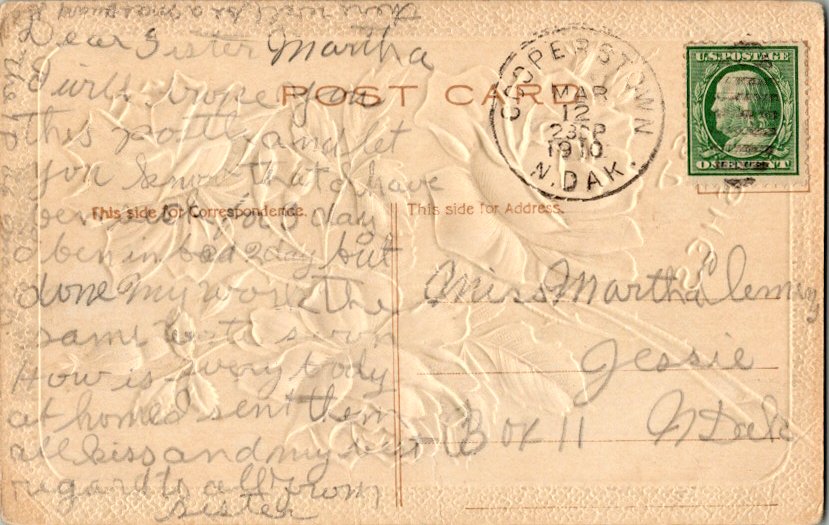 there will be a mas
Dear Sister Martha
I will wrote you
POST CARD
This postly and let
you know that I have
ben sick for 3 day
I ben in bad 2 day but
done my work the
same
How is every body
at home I sent them
all kiss and my best
regard to all from
sister
This side for Correspondence.
This side for Address.
COOPERSTOWN
MAR
12
230P
1910
N. DAK.
U.S. POSTAGE
ONE CENT
Miss Martha
Jessie
Box 11 N Dak